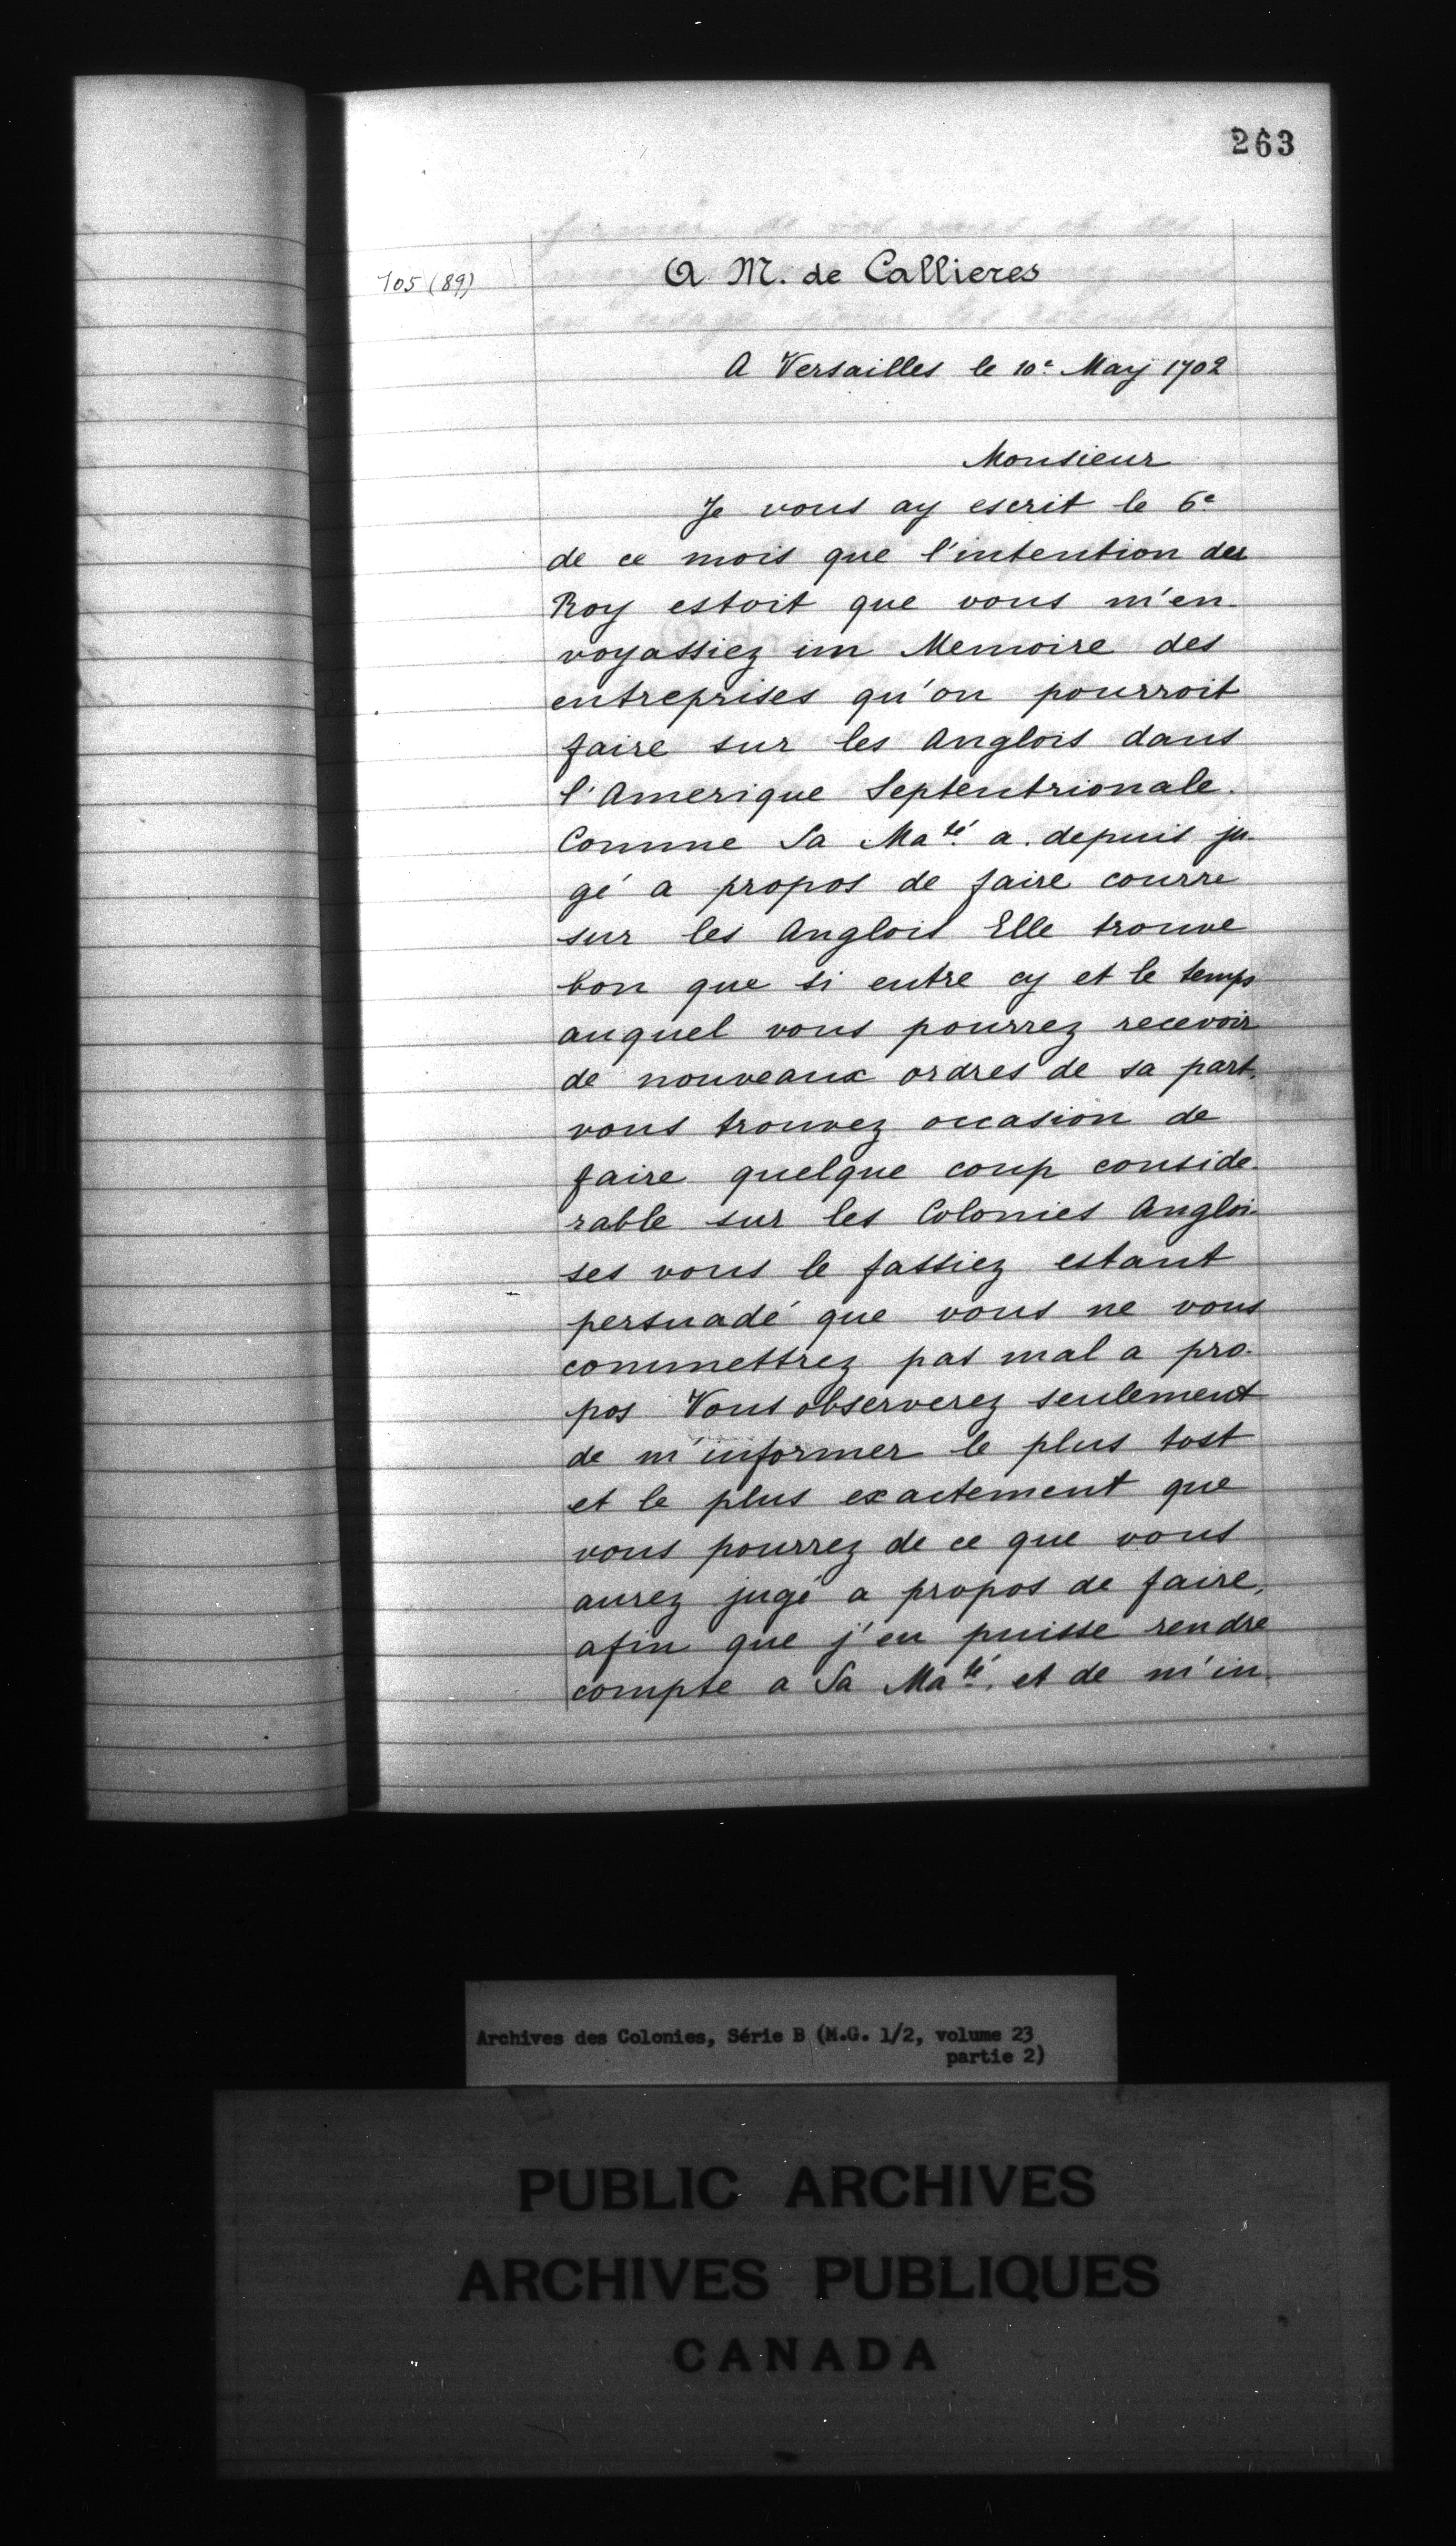 263
105 (89)
A M. de Callieres
A Versailles le 10e May 1702
Monsieur
Je vous ay escrit le 6e
de ce mois que l'intention du
Roy estoit que vous m'en-
voyassiez un Memoire des
entreprises qu'on pourroit
faire sur les Anglois dans
l'Amerique Septentrionale.
Comme Sa Maté a depuis ju-
gé a propos de faire courre
sur les Anglois Elle trouve
bon que si entre cy et le temps
auquel vous pourrez recevoir
de nouveaux ordres de sa part,
vous trouvez occasion de
faire quelque coup conside-
rable sur les Colonies Angloi-
ses vous le fassiez estant
persuadé que vous ne vous
commettrez pas mal a pro-
pos Vous observerez seulement
de m'informer le plus tost
et le plus exactement que
vous pourrez de ce que vous
aurez jugé a propos de faire,
afin que j'en puisse rendre
compte a Sa Maté. et de m'in-
Archives des Colonies, Série B (M.G. 1/2, volume 23
partie 2)
PUBLIC ARCHIVES
ARCHIVES PUBLIQUES
CANADA